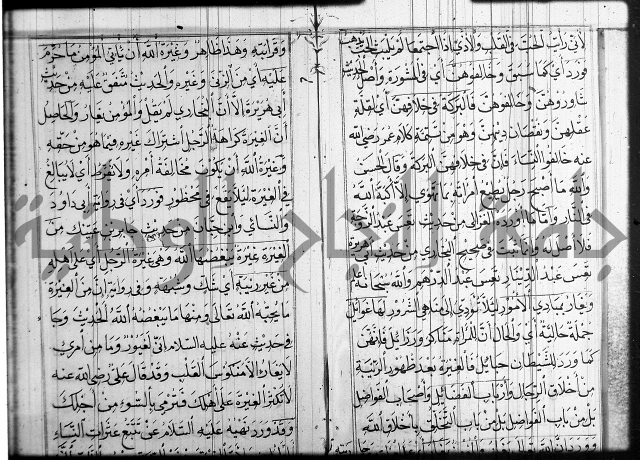 لأن رأت الحب في القلب والأذى إذا اجتمعا لم يلبث الحب يذهب
فورد أي كما سبق وخالفوهن أي في المشورة وأصل الحديث
شاوروهن وخالفوهن فالبركة في خلافهن أي لقلة
عقلهن ونقصان دينهن وهو من تتمة كلام عمر رضي الله
عنه خالفوا النساء فإن في خلافهن البركة وقال الحسن
والله ما أصبح رجل يطيع امرأته بما تهوى إلا أكبه الله
في النار وأما ما أورده الغزالي من حديث تعس عبد الزوجة
فلا أصل له وإنما ثبت في صحيح البخاري من حديث أبي هريرة
تعس عبد الدينار تعس عبد الدرهم والله سبحانه
ويغار مبادي الأمور لئلا تؤدي إلى مناهي الشرور لها غوائل
جملة حالية أي والحال أن للمرأة مناكر ورزائل فإنهن
كما ورد للشيطان حبائل فالغيرة بعد ظهور الريبة
من أخلاق الرجال وأرباب الفضائل وأصحاب الفواضل
بل من باب الفواضل بل من باب التخلق بأخلاق الله
وقرابته وهذا ظاهر وغيرة الله أن يأتي المؤمن ما حرم
عليه أي من الزنى وغيره والحديث متفق عليه من حديث
أبي هريرة إلا أن البخاري لم يقل والمؤمن يغار والحاصل
أن الغيرة كراهة الرجل اشتراك غيره فيما هو من حقه
وغيرة الله أن يكون مخالفة أمره ولا يفرط أي لا يبالغ
في الغيرة لئلا يقع في محظور فورد أي في رواية أبي داود
والنسائي وابن حبان من حديث جابر بن عتيك من
الغيرة غيرة يبغضها الله وهي غيرة الرجل أي على أهله
من غير ريبة أي شك وشبهة وفي رواية إن من الغيرة
ما يحبه الله تعالى ومنها ما يبغضه الله الحديث وجا
في حديث عنه عليه السلام إني لغيور وما من امرئ
لا يغار إلا منكوس القلب وقد قال علي رضي الله عنه
لا تكثر الغيرة على أهلك فترمى بالسوء من أجلك
وقد ورد نهيه عليه السلام عن تتبع عثرات النساء
جامعة النجاح الوطنية